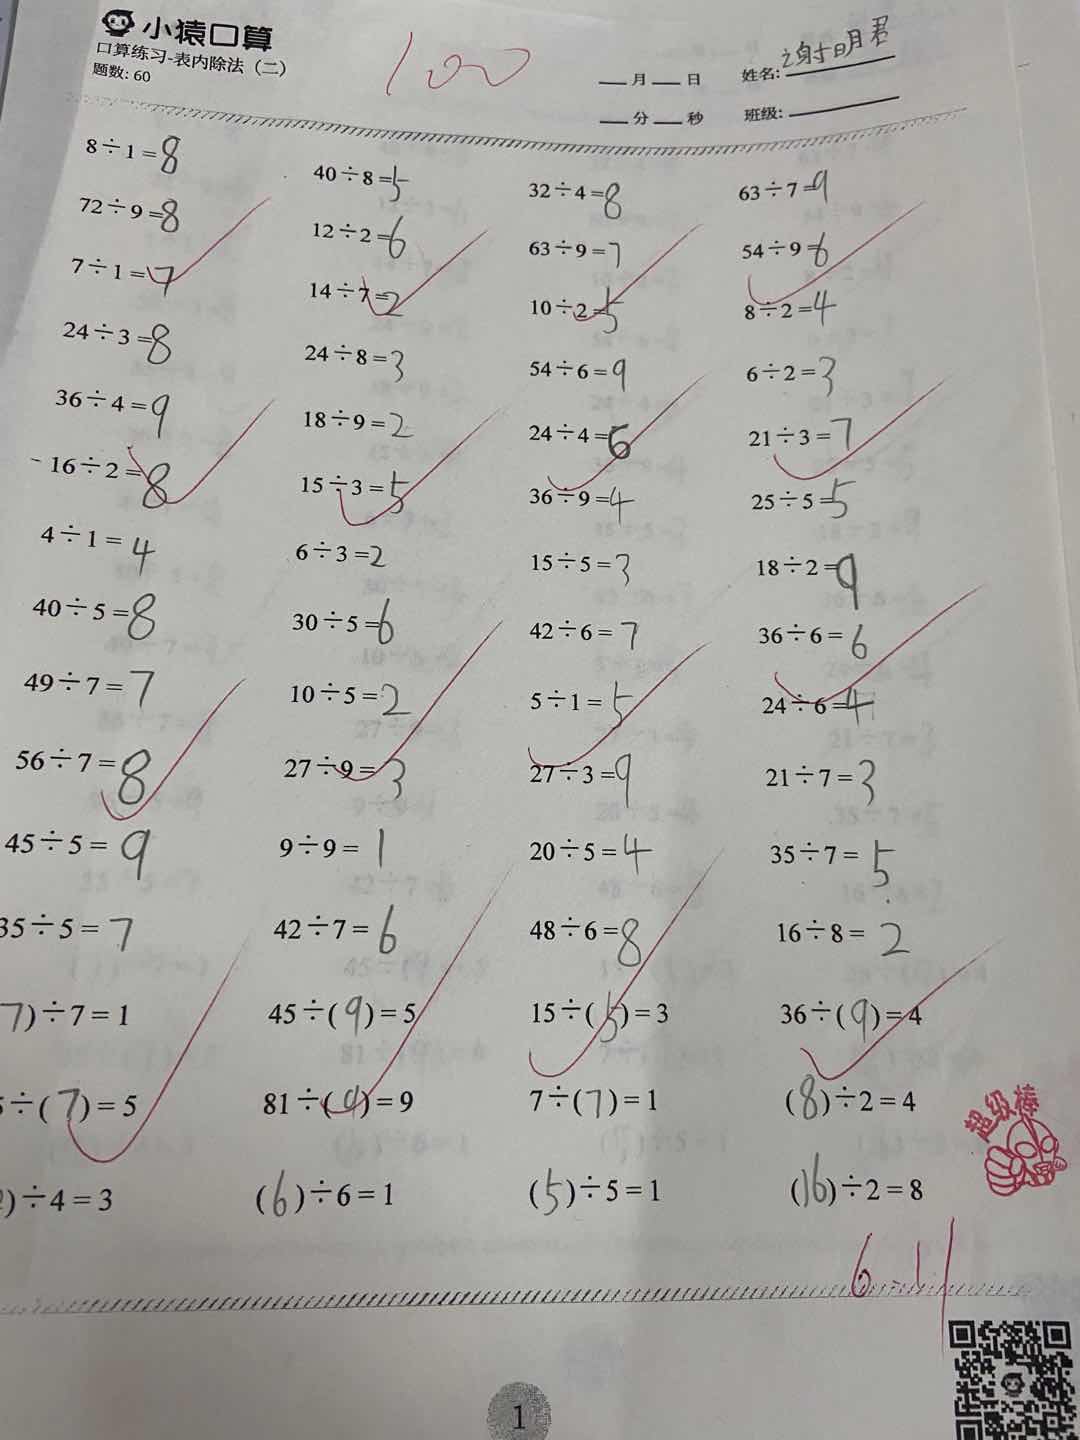 小猿口算
口算练习-表内除法（二）
题数: 60
100
月 日 姓名: 谢明君
分 秒 班级:
8÷1=8 40÷8=5 32÷4=8 63÷7=9
72÷9=8 12÷2=6 63÷9=7 54÷9=6
7÷1=7 14÷7=2 10÷2=5 8÷2=4
24÷3=8 24÷8=3 54÷6=9 6÷2=3
36÷4=9 18÷9=2 24÷4=6 21÷3=7
16÷2=8 15÷3=5 36÷9=4 25÷5=5
4÷1=4 6÷3=2 15÷5=3 18÷2=9
40÷5=8 30÷5=6 42÷6=7 36÷6=6
49÷7=7 10÷5=2 5÷1=5 24÷6=4
56÷7=8 27÷9=3 27÷3=9 21÷7=3
45÷5=9 9÷9=1 20÷5=4 35÷7=5
35÷5=7 42÷7=6 48÷6=8 16÷8=2
7)÷7=1 45÷(9)=5 15÷(5)=3 36÷(9)=4
÷(7)=5 81÷(9)=9 7÷(7)=1 (8)÷2=4
)÷4=3 (6)÷6=1 (5)÷5=1 (16)÷2=8
超级棒
6.11
1